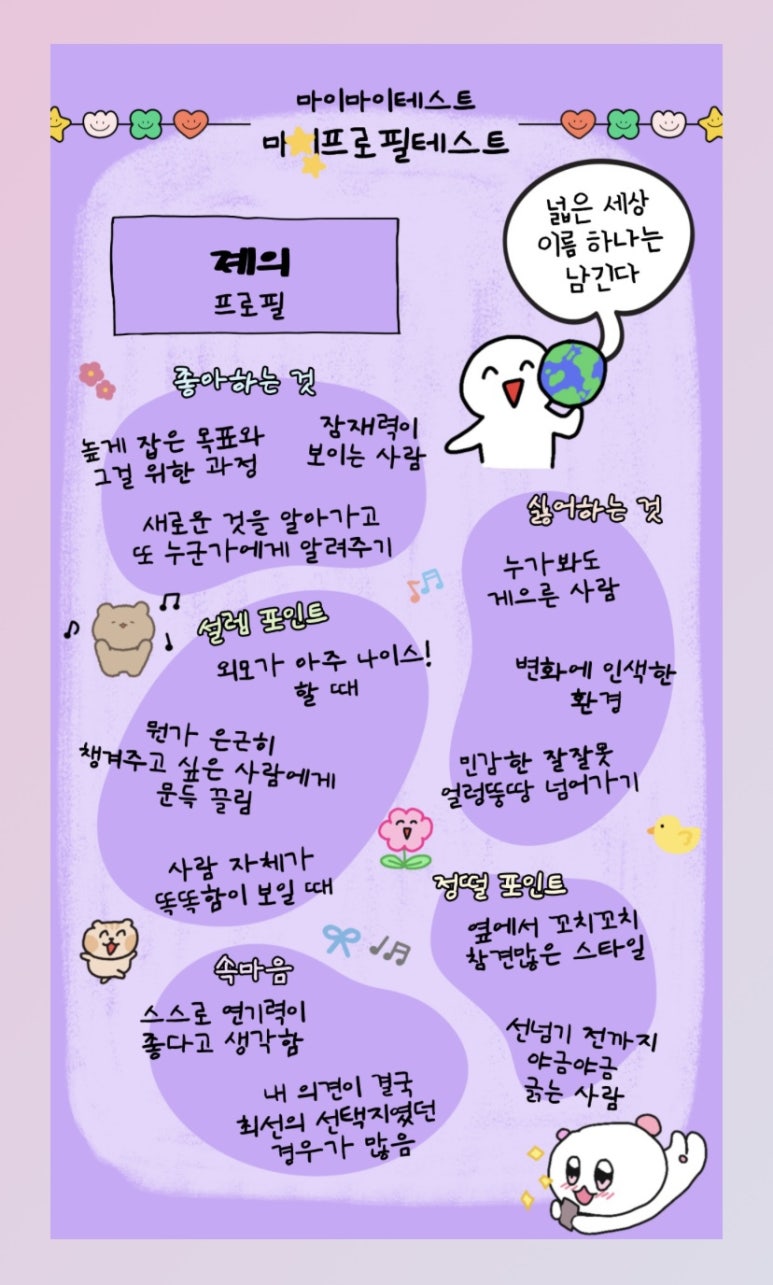 마이마이테스트
마이프로필테스트
넓은 세상
이름 하나는
남긴다
졔의
프로필
좋아하는 것
높게 잡은 목표와
그걸 위한 과정
잠재력이
보이는 사람
새로운 것을 알아가고
또 누군가에게 알려주기
싫어하는 것
누가봐도
게으른 사람
변화에 인색한
환경
민감한 잘잘못
얼렁뚱땅 넘어가기
설렘 포인트
외모가 아주 나이스!
할 때
뭔가 은근히
챙겨주고 싶은 사람에게
문득 끌림
사람 자체가
똑똑함이 보일 때
정떨 포인트
옆에서 꼬치꼬치
참견많은 스타일
선넘기 전까지
야금야금
긁는 사람
속마음
스스로 연기력이
좋다고 생각함
내 의견이 결국
최선의 선택지였던
경우가 많음